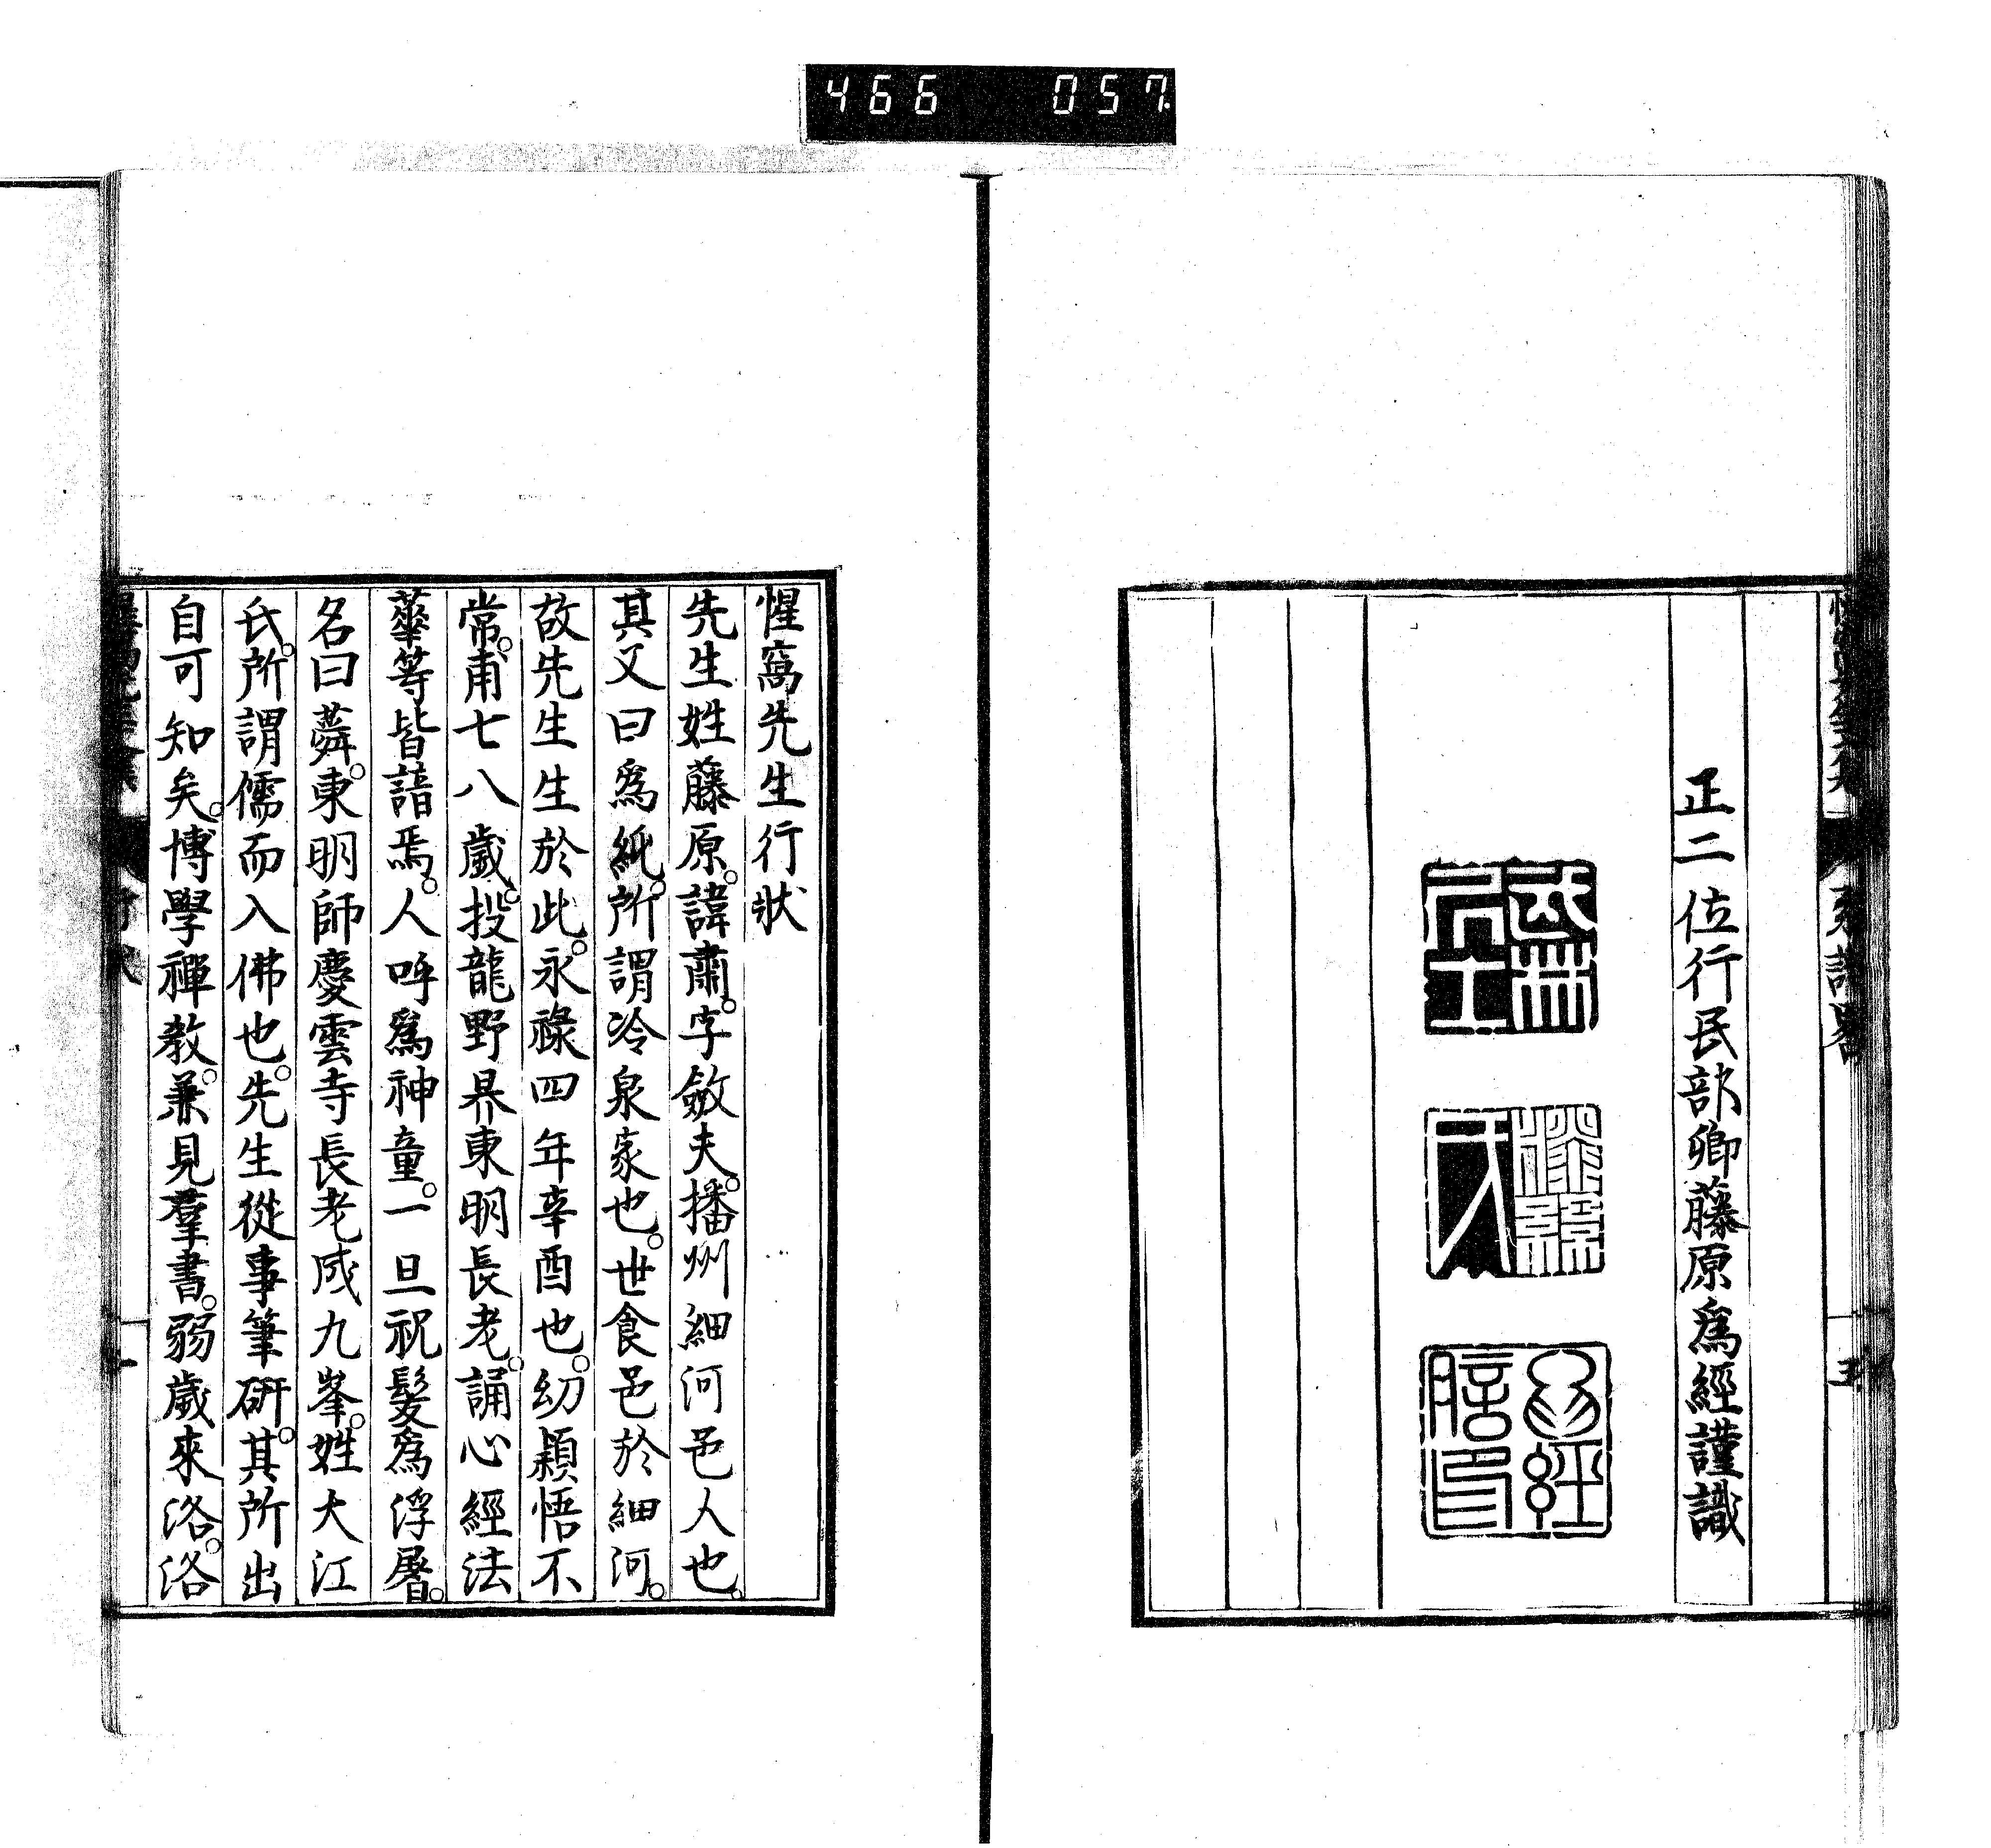 466 057
正二位行民部卿藤原爲經謹識
惺窩先生行狀
先生姓藤原。諱肅。字斂夫。播州細河邑人也。
其父曰爲純。所謂冷泉家也。世食邑於細河。
故先生生於此。永祿四年辛酉也。幼穎悟不
常。甫七八歲。投龍野昙東明長老。誦心經法
華等皆諳焉。人呼爲神童。一旦祝髮爲浮屠。
名曰蕣。東明師慶雲寺長老咸九峯。姓大江
氏。所謂儒而入佛也。先生從事筆硏。其所出
自可知矣。博學禪教。兼見羣書。弱歲來洛。洛